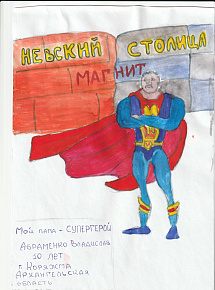 НЕВСКИЙ СТОЛИЦА
МАГНИТ
Мой папа - СУПЕРГЕРОЙ
АБРАМЕНКО ВЛАДИСЛАВ
10 ЛЕТ
г. КОРЯЖМА
АРХАНГЕЛЬСКАЯ
ОБЛАСТЬ